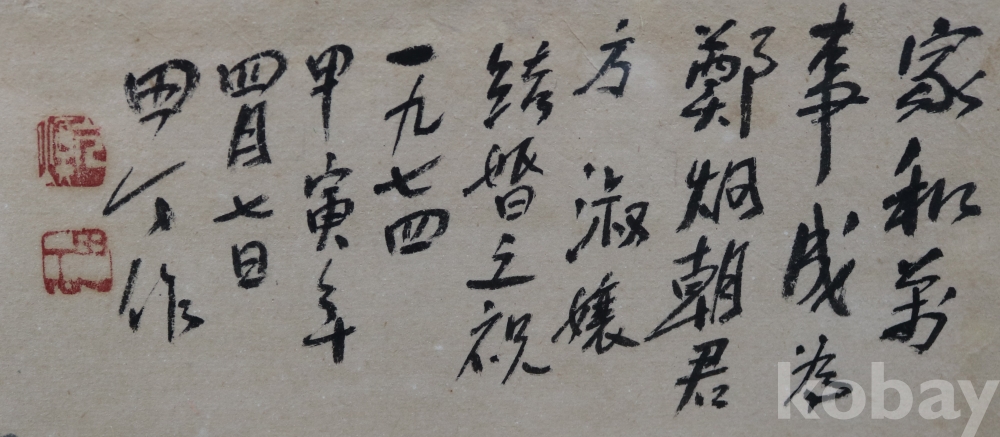 家和萬
事成為
鄭炯朝君
方淑孃
結婚之祝
一九七四
甲寅年
四月七日
田丁作
kobay